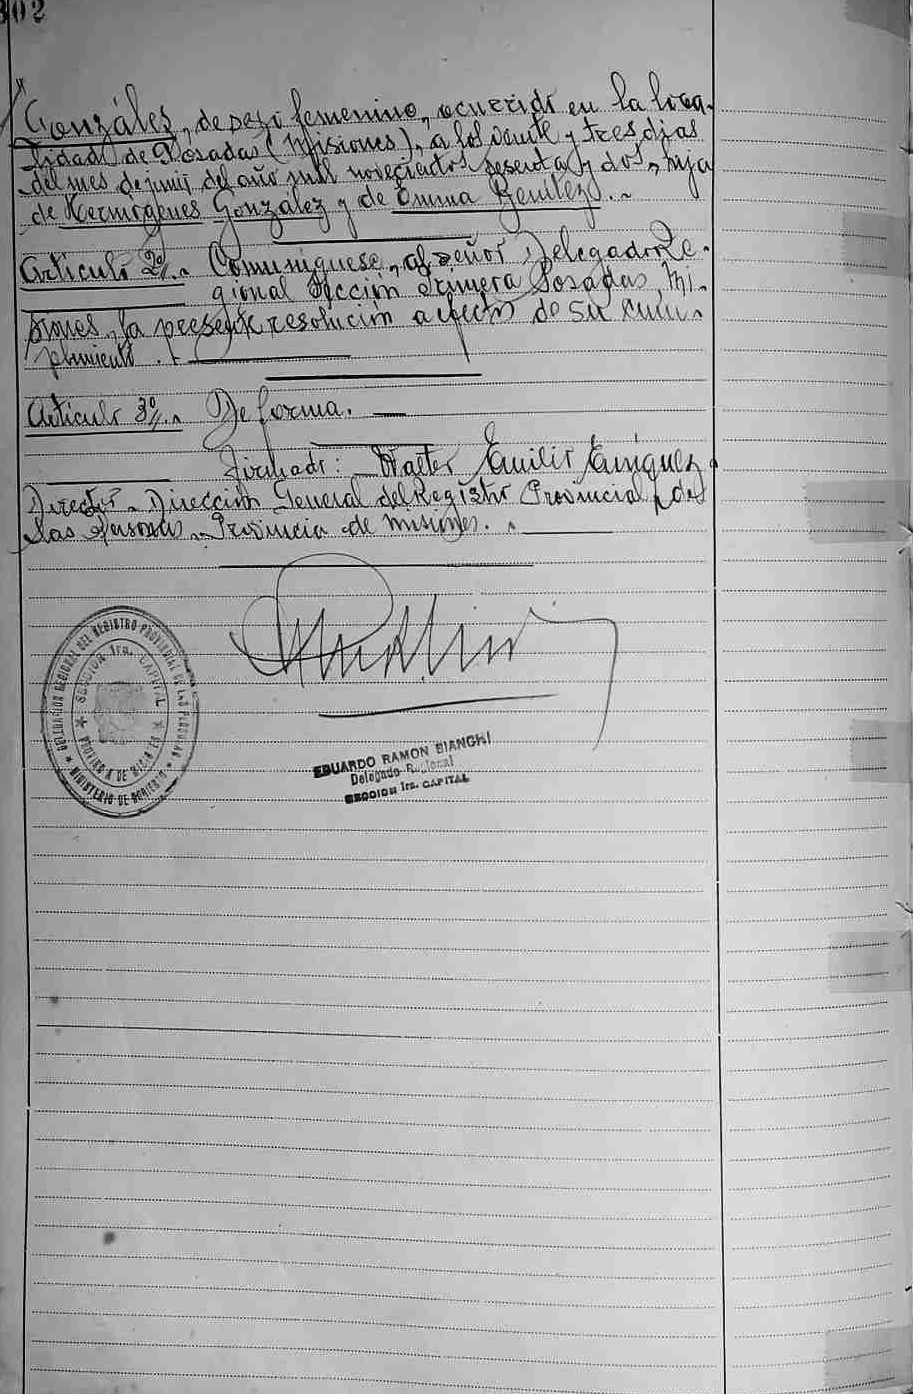 302
González, de sexo femenino, ocurrido en la loca-
lidad de Posadas (Misiones), a los veinte y tres dias
del mes de junio del año mil noveciertos sesenta y dos, hija
de Hermógenes González y de Emma Benitez.-
Articulo 2º.- Comuniquese, al señor Delegado Re-
gional Sección Primera Posadas, Mi-
siones, la presente resolución a efectos de su cum-
plimiento.-
Articulo 3º.- De forma.
Firmado: Walter Emilio Enriquez
Director - Dirección General del Registro Provincial de
las Personas - Provincia de Misiones.-
DELEGACION REGIONAL DEL REGISTRO PROVINCIAL DE LAS PERSONAS
SECCION 1ra. CAPITAL
PROVINCIA DE MISIONES
MINISTERIO DE GOBIERNO
EDUARDO RAMON BIANCHI
Delegado Regional
SECCION 1ra. CAPITAL